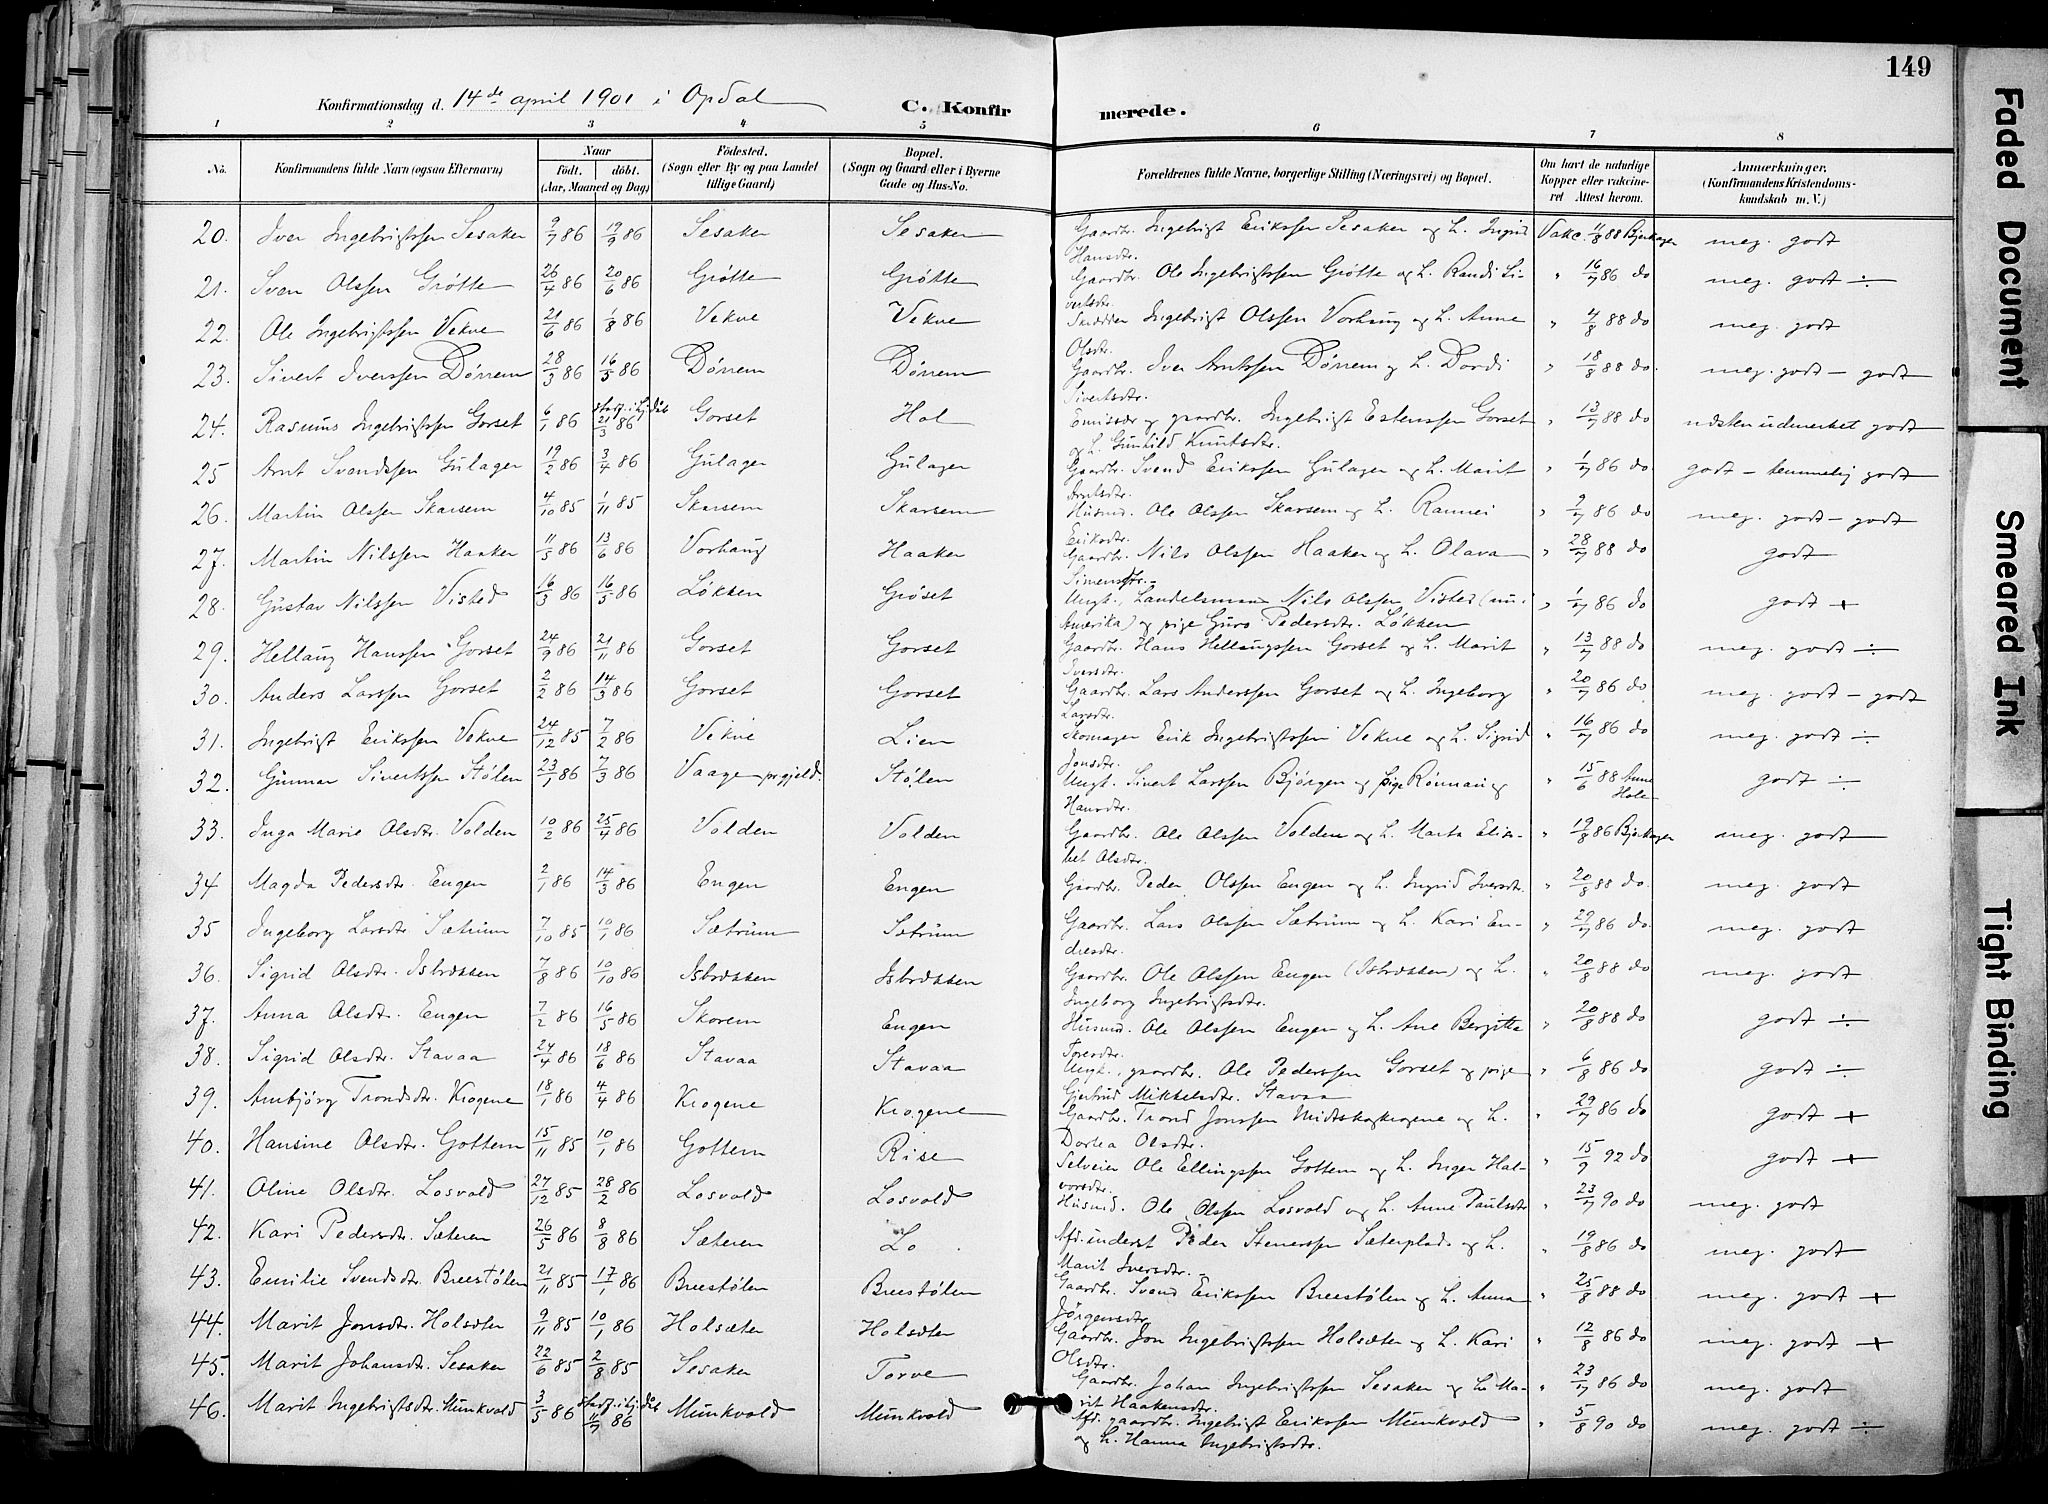 149
Konfirmationsdag d. 14de april 1901 i Opdal
C. Konfirmerede.
1 2 3 4 5 6 7 8
No. Konfirmandens fulde Navn (ogsaa Efternavn) Naar født. døbt. (Aar, Maaned og Dag) Fødested. (Sogn eller By og paa Landet tillige Gaard) Bopæl. (Sogn og Gaard eller i Byerne Gade og Hus-No. Forældrenes fulde Navne, borgerlige Stilling (Næringsvei) og Bopæl. Om havt de naturlige Kopper eller vakcineret Attest herom. Anmærkninger. (Konfirmandens Kristendomskundskab m. V.)
20. Iver Ingebrigtssen Sesaker 9/7 86 19/9 86 Sesaker Sesaker Gaardbr. Ingebrigt Erikssen Sesaker og h. Ingrid Hansdtr. Vakc. 11/8 88 Bjerkager meg. godt
21. Sven Olssen Grøtte 26/4 86 20/6 86 Grøtte Grøtte Gaardbr. Ole Ingebrigtssen Grøtte og h. Randi Sivertsdtr. " 16/7 86 do meg. godt ÷
22. Ole Ingebrigtssen Vekve 21/6 86 1/8 86 Vekve Vekve Skrædder Ingebrigt Olssen Vorhaug og h. Anne Olsdtr. " 4/8 88 do meg. godt
23. Sivert Iverssen Dørrem 28/3 86 16/5 86 Dørrem Dørrem Gaardbr. Iver Arntssen Dørrem og h. Dordi Sivertsdtr. " 18/8 88 do. meg. godt - godt
24. Rasmus Ingebrigtssen Gorset 6/1 86 stadf. i kj. døbt 21/3 86 Gorset Hol Emissær og gaardbr. Ingebrigt Estenssen Gorset og h. Gunhild Knutsdtr. " 13/7 88 do næsten udmerket godt
25 Arnt Svendssen Gulager 19/2 86 3/4 86 Gulager Gulager Gaardbr. Svend Erikssen Gulager og h. Marit Arntsdtr. " 1/7 86 do. godt - temmelig godt
26. Martin Olssen Skarsem 4/10 85 1/11 85 Skarsem Skarsem Husmd. Ole Olssen Skarsem og h. Rannei Eriksdtr. " 2/7 86 do meg. godt - godt
27. Martin Nilssen Haaker 11/5 86 13/6 86 Vorhaug Haaker Gaardbr. Nils Olssen Haaker og h. Olava Simensdtr. " 28/7 88 do godt
28. Gustav Nilssen Visted 16/3 86 16/5 86 Løkken Grøset Ungk., Landelsmand Nils Olssen Visted (nu i Amerika) og pige Guro Pedersdtr. Løkken " 1/7 86 do godt +
29. Hellaug Hanssen Gorset 24/9 86 21/11 86 Gorset Gorset Gaardbr. Hans Hellaugssen Gorset og h. Marit Iversdtr. " 13/7 88 do meg. godt ÷
30. Anders Larssen Gorset 2/2 86 14/3 86 Gorset Gorset Gaardbr. Lars Anderssen Gorset og h. Ingeborg Larsdtr. " 20/7 86 do meg. godt - godt
31. Ingebrigt Erikssen Vekve 24/12 85 7/2 86 Vekve Lien Skomager Erik Ingebrigtssen Vekve og h. Sigrid Jonsdtr. " 16/7 86 do meg. godt ÷
32. Gunnar Sivertssen Stølen 23/1 86 7/3 86 Vaage prgjeld. Stølen Ungk. Sivert Larssen Bjørgen og pige Rønnau og Hansdtr. " 15/6 88 Anne Hole godt ÷
33. Inga Marie Olsdtr. Volden 10/2 86 25/4 86 Volden Volden Gaardbr. Ole Olssen Volden og h. Marta Elisabet Olsdtr. " 19/8 86 Bjerkager meg. godt
34 Magda Pedersdtr. Engen 2/1 86 14/3 86 Engen Engen Gaardbr. Peder Olssen Engen og h. Ingrid Iversdtr. " 20/8 88 do. meg. godt
35 Ingeborg Larsdtr. Sætrum 7/10 85 10/1 86 Sætrum Sætrum Gaardbr. Lars Olssen Sætrum og h. Kari Endresdtr. " 29/7 86 do. meg. godt
36. Sigrid Olsdtr. Isbrækken 7/8 86 10/10 86 Isbrækken Isbrækken Gaardbr. Ole Olssen Engen (Isbrækken) og h. Ingeborg Ingebrigtsdtr. " 20/8 88 do meg. godt
37. Anna Olsdtr. Engen 7/2 86 16/5 86 Skorem Engen Husmd. Ole Olssen Engen og h. Ane Bergitte Toresdtr. " 20/8 88 do godt ÷
38. Sigrid Olsdtr. Stavaa 24/4 86 18/6 86 Stavaa Stavaa Ungk., gaardbr. Ole Pederssen Gorset og pige Gjertrud Mikkelsdtr. Stavaa " 6/8 86 do godt ÷
39. Arnbjørg Trondsdtr. Krogene 18/1 86 4/4 86 Krogene Krogene Gaardbr. Trond Jonssen Midtskogkrogene og h. Dortea Olsdtr. " 29/7 86 do godt +
40. Hansine Olsdtr. Gottem 15/11 85 10/1 86 Gottem Rise Selveier Ole Ellingssen Gottem og h. Inger Halvorsdtr. " 15/9 92 do godt +
41. Oline Olsdtr. Losvold 27/12 85 28/2 86 Losvold Losvold Husmd. Ole Olssen Losvold og h. Anne Paulsdtr " 23/7 90 do meg. godt
42. Kari Pedersdtr. Sæteren 26/5 86 8/8 86 Sæteren Lo Afd. inderst Peder Stenerssen Sæterplads og h. Marit Iversdtr. " 19/8 86 do meg. godt
43. Emilie Svendsdtr. Breestølen 21/11 85 17/1 86 Breestølen Breestølen Gaardbr. Svend Erikssen Breestølen og h. Anna Jørgensdtr. " 25/8 88 do meg. godt +
44. Marit Jonsdtr. Holsæter 9/11 85 10/1 86 Holsæter Holsæter Gaardbr. Jon Ingebrigtssen Holsæter og h. Kari Olsdtr. " 12/8 86 do meg. godt +
45. Marit Johansdtr. Sesaker 22/6 85 2/8 85 Sesaker Torve Gaardbr. Johan Ingebrigtssen Sesaker og h. Marit Haakensdtr. " 23/7 86 do meg. godt
46. Marit Ingebrigtsdtr. Munkvold 3/5 86 stadf. i kj. døbt 11/7 86 Munkvold Munkvold Afd. gaardbr. Ingebrigt Erikssen Munkvold og h. Hanna Ingebrigtsdtr. " 5/8 90 do meg. godt ÷
Faded Document
Smeared Ink
Tight Binding